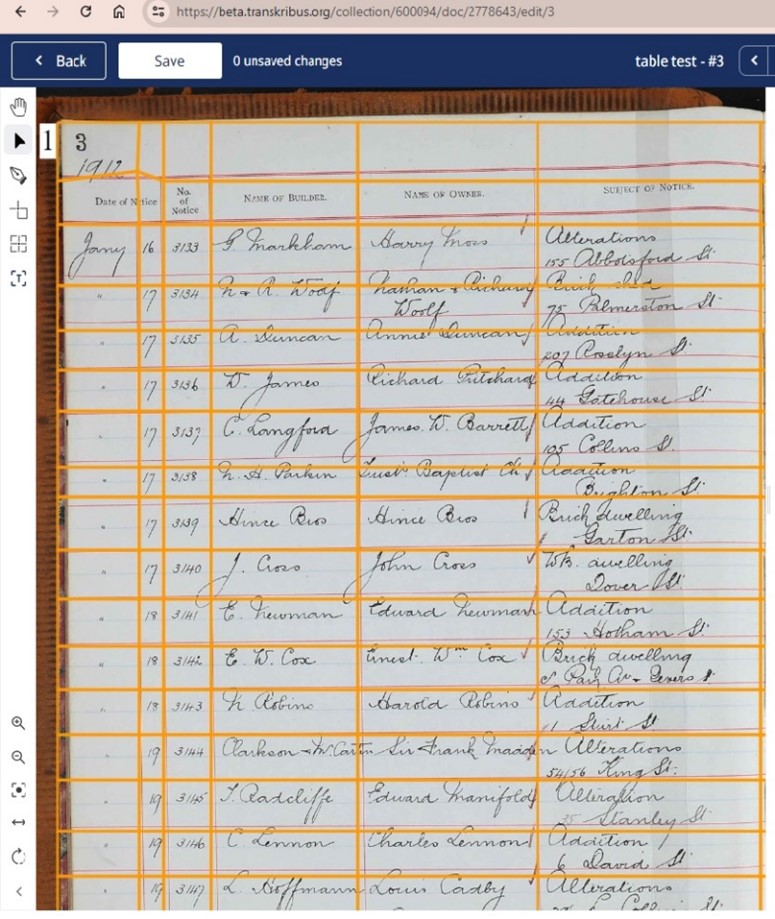 https://beta.transkribus.org/collection/600094/doc/2778643/edit/3
Back Save 0 unsaved changes table test - #3
1 3
1912
Date of Notice No. of Notice NAME OF BUILDER. NAME OF OWNER. SUBJECT OF NOTICE.
Jany 16 3133 G. Markham Harry Moss Alterations
155 Abbotsford St.
" 17 3134 N & R. Woolf Nathan & Richard Brick shed
Woolf 75 Palmerston St.
" 17 3135 A. Duncan Annie Duncan Addition
207 Roslyn St.
" 17 3136 W. James Richard Pritchard Addition
44 Gatehouse St.
" 17 3137 C. Langford James. W. Barrett Addition
105 Collins St.
" 17 3138 H. Parkin Baptist Ch Addition
Brighton St.
" 17 3139 Hince Bros Hince Bros Brick dwelling
Garton St.
" 17 3140 J. Cross John Cross WB. dwelling
Dover St.
" 18 3141 E. Newman Edward Newman Addition
153 Hotham St.
" 18 3142 E. W. Cox Ernest. Wm Cox Brick dwelling
" 18 3143 H. Robins Harold Robins Addition
11 St.
" 19 3144 Clarkson & McCartin Sir Frank Madden Alterations
54/56 King St.
" 19 3145 T. Radcliffe Edward Manifold Alteration
35 Stanley St
" 19 3146 C. Lennon Charles Lennon Addition
6 David St
" 19 3147 L. Hoffmann Louis Cadby Alterations
Collins St